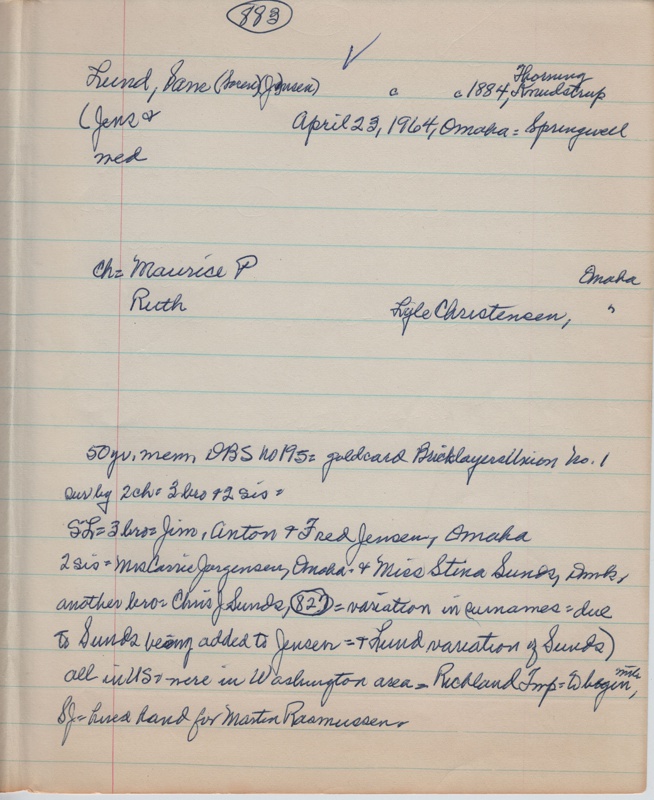 883
✓
Lund, Sane (Soren) (J Jensen) c c 1884, Thorning Knudstrup
(Jens &
med April 23, 1964, Omaha = Springwell
ch= Maurice P Omaha
Ruth Lyle Christensen, "
50 yr. mem, DBS No 195 = goldcard Bricklayers Union No. 1
sur by 2 ch = 3 bro + 2 sis =
SL = 3 bro = Jim, Anton & Fred Jensen, Omaha
2 sis = Mrs Carrie Jorgensen, Omaha & Miss Stena Sunds, Dmk,
another bro = Chris J Sunds, (827) = variation in surnames = due
to Sunds being added to Jensen = & Lund variation of Sunds)
all in US & were in Washington area = Richland Twp = to begin,
SJ = hired hand for Martin Rasmussen